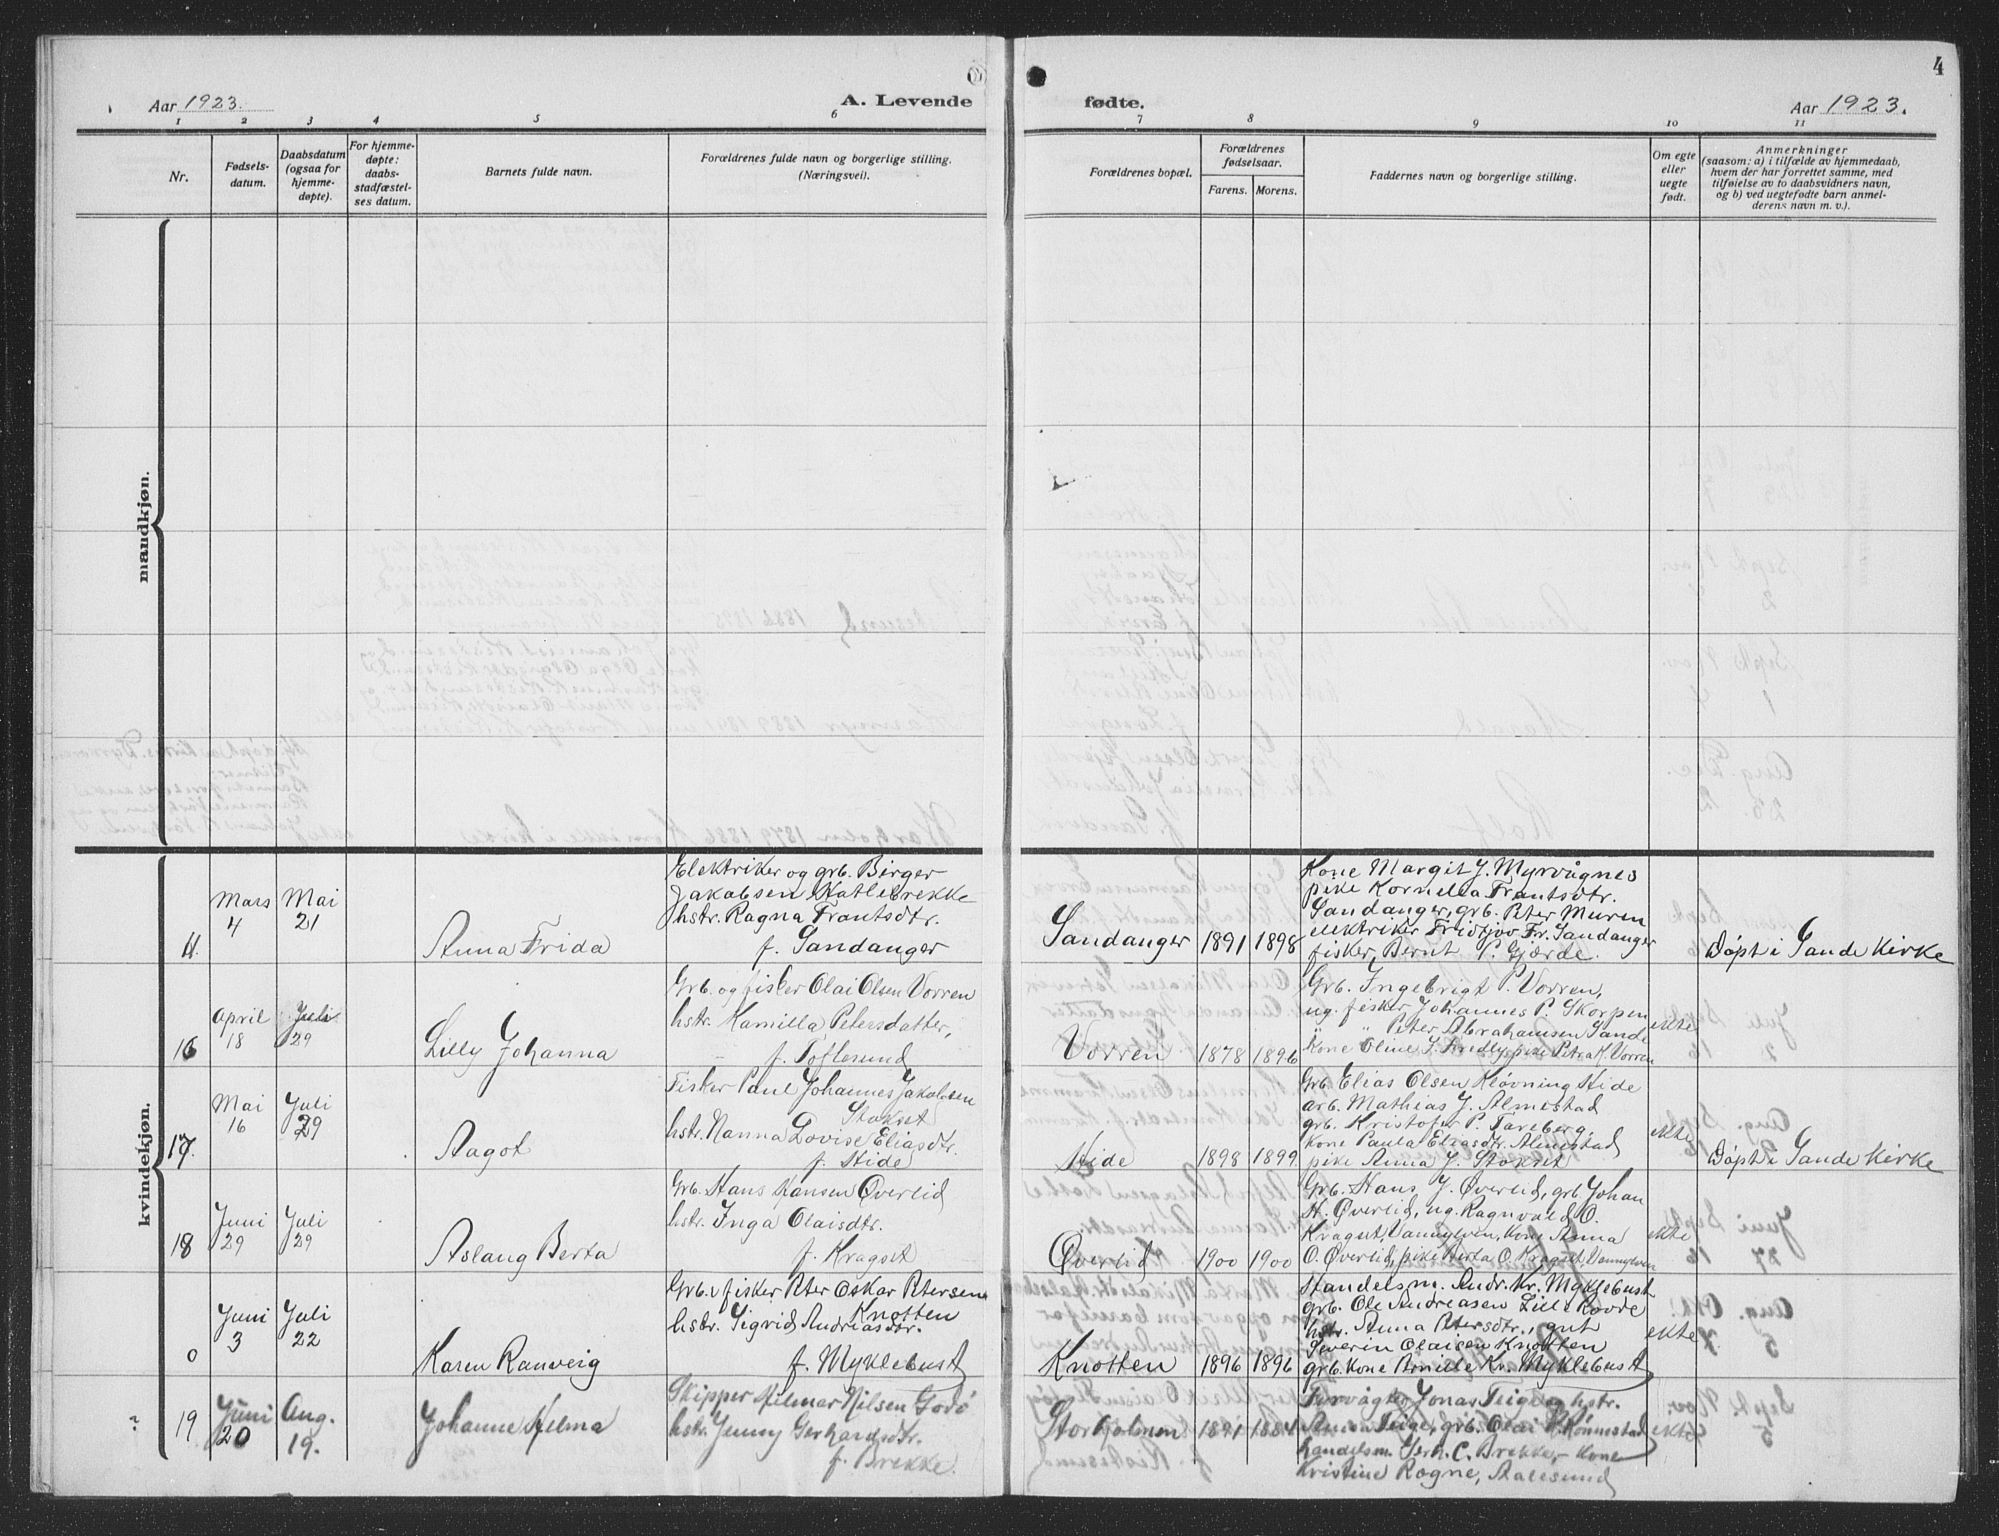 4
Aar 1923.
A. Levende
fødte.
Aar 1923.
1
2
3
4
5
6
7
8
9
10
11
Nr.
Fødsels-
datum.
Daabsdatum
(ogsaa for
hjemme-
døpte).
For hjemme-
døpte:
daabs-
stadfæstel-
ses datum.
Barnets fulde navn.
Forældrenes fulde navn og borgerlige stilling.
(Næringsvei).
Forældrenes bopæl.
Forældrenes
fødselsaar.
Farens. Morens.
Faddernes navn og borgerlige stilling.
Om egte
eller
uegte
født.
Anmerkninger
(saasom: a) i tilfælde av hjemmedaab,
hvem der har forrettet samme, med
tilføielse av to daabsvidners navn,
og b) ved uegtefødte barn anmel-
derens navn m. v.).
mandkjøn.
kvindekjøn.
11.
Mars
4
Mai
21
Anna Frida
Elektriker og grb. Birger
Jakobsen Katlebrekke
hstr. Ragna Frantsdtr.
f. Sandanger
Sandanger
1891
1898
Kone Margit J. Myrvågnes
pike Kornelia Frantsdtr.
Sandanger, grb. Peter Muren
elektriker Fridtjov Fr. Sandanger
fisker, Bernt P. Gjærde.
Døpt i Sande Kirke
16
April
18
Juli
29
Lilly Johanna
Grb. og fisker Olai Olsen Vorren
hstr. Kamilla Petersdatter,
f. Toftesund
Vorren
1878
1896
Grb. Ingebrigt P. Vorren,
ug. fisker Johannes P. Skorpen
" " Peter Abrahamsen Sande
Kone Oline J. pike Petra K. Vorren
ekte
17.
Mai
16
Juli
29
Aagot
Fisker Paul Johannes Jakobsen
Stokset
hstr. Nanna Lovise Eliasdtr.
f. Hide
Hide
1898
1899
Grb. Elias Olsen Kløvning Hide
arb. Mathias J. Almestad
grb. Kristofer P. Tareberg,
Kone Paula Eliasdtr. Almestad
pike Anna J. Stokset
ekte
Døpt i Sande Kirke
18
Juni
29
Juli
29
Aslaug Berta
Grb. Hans Hansen Øverlid
hstr. Inga Olaisdtr.
f. Kragset
Øverlid
1900
1900
Grb. Hans J. Øverlid, grb. Johan
H. Øverlid, ug. Ragnvald O.
Kragset, Vannylven, Kone Anna
O. Øverlid, pike Berta O. Kragset, Vannylven
ekte
0
Juni
3
Juli
22
Karen Ranveig
Grb. fisker Peter Oskar Petersen
Knotten
hstr. Sigrid Andreasdtr.
f. Myklebust
Knotten
1896
1896
Handelsm. Andr. Kr. Myklebust
grb. Ole Andreasen Lille Rovde
hstr. Anna Petersdtr., gut
Severin Olaisen Knotten
grb. Kone Kr. Myklebust
ekte
19
Juni
20
Aug.
19.
Johanne Helma
Skipper Hilmar Nilsen Godø
hstr. Jenny Gerhardsdtr.
f. Brekke.
Storholmen
1891
1884
Fyrvågter Jonas Teige, hstr.
Anna Teige, grb. Olai P. Rønnestad
handelsm. Gerh. C. Brekke, Kone
Kristine Rogne, Aalesund
ekte